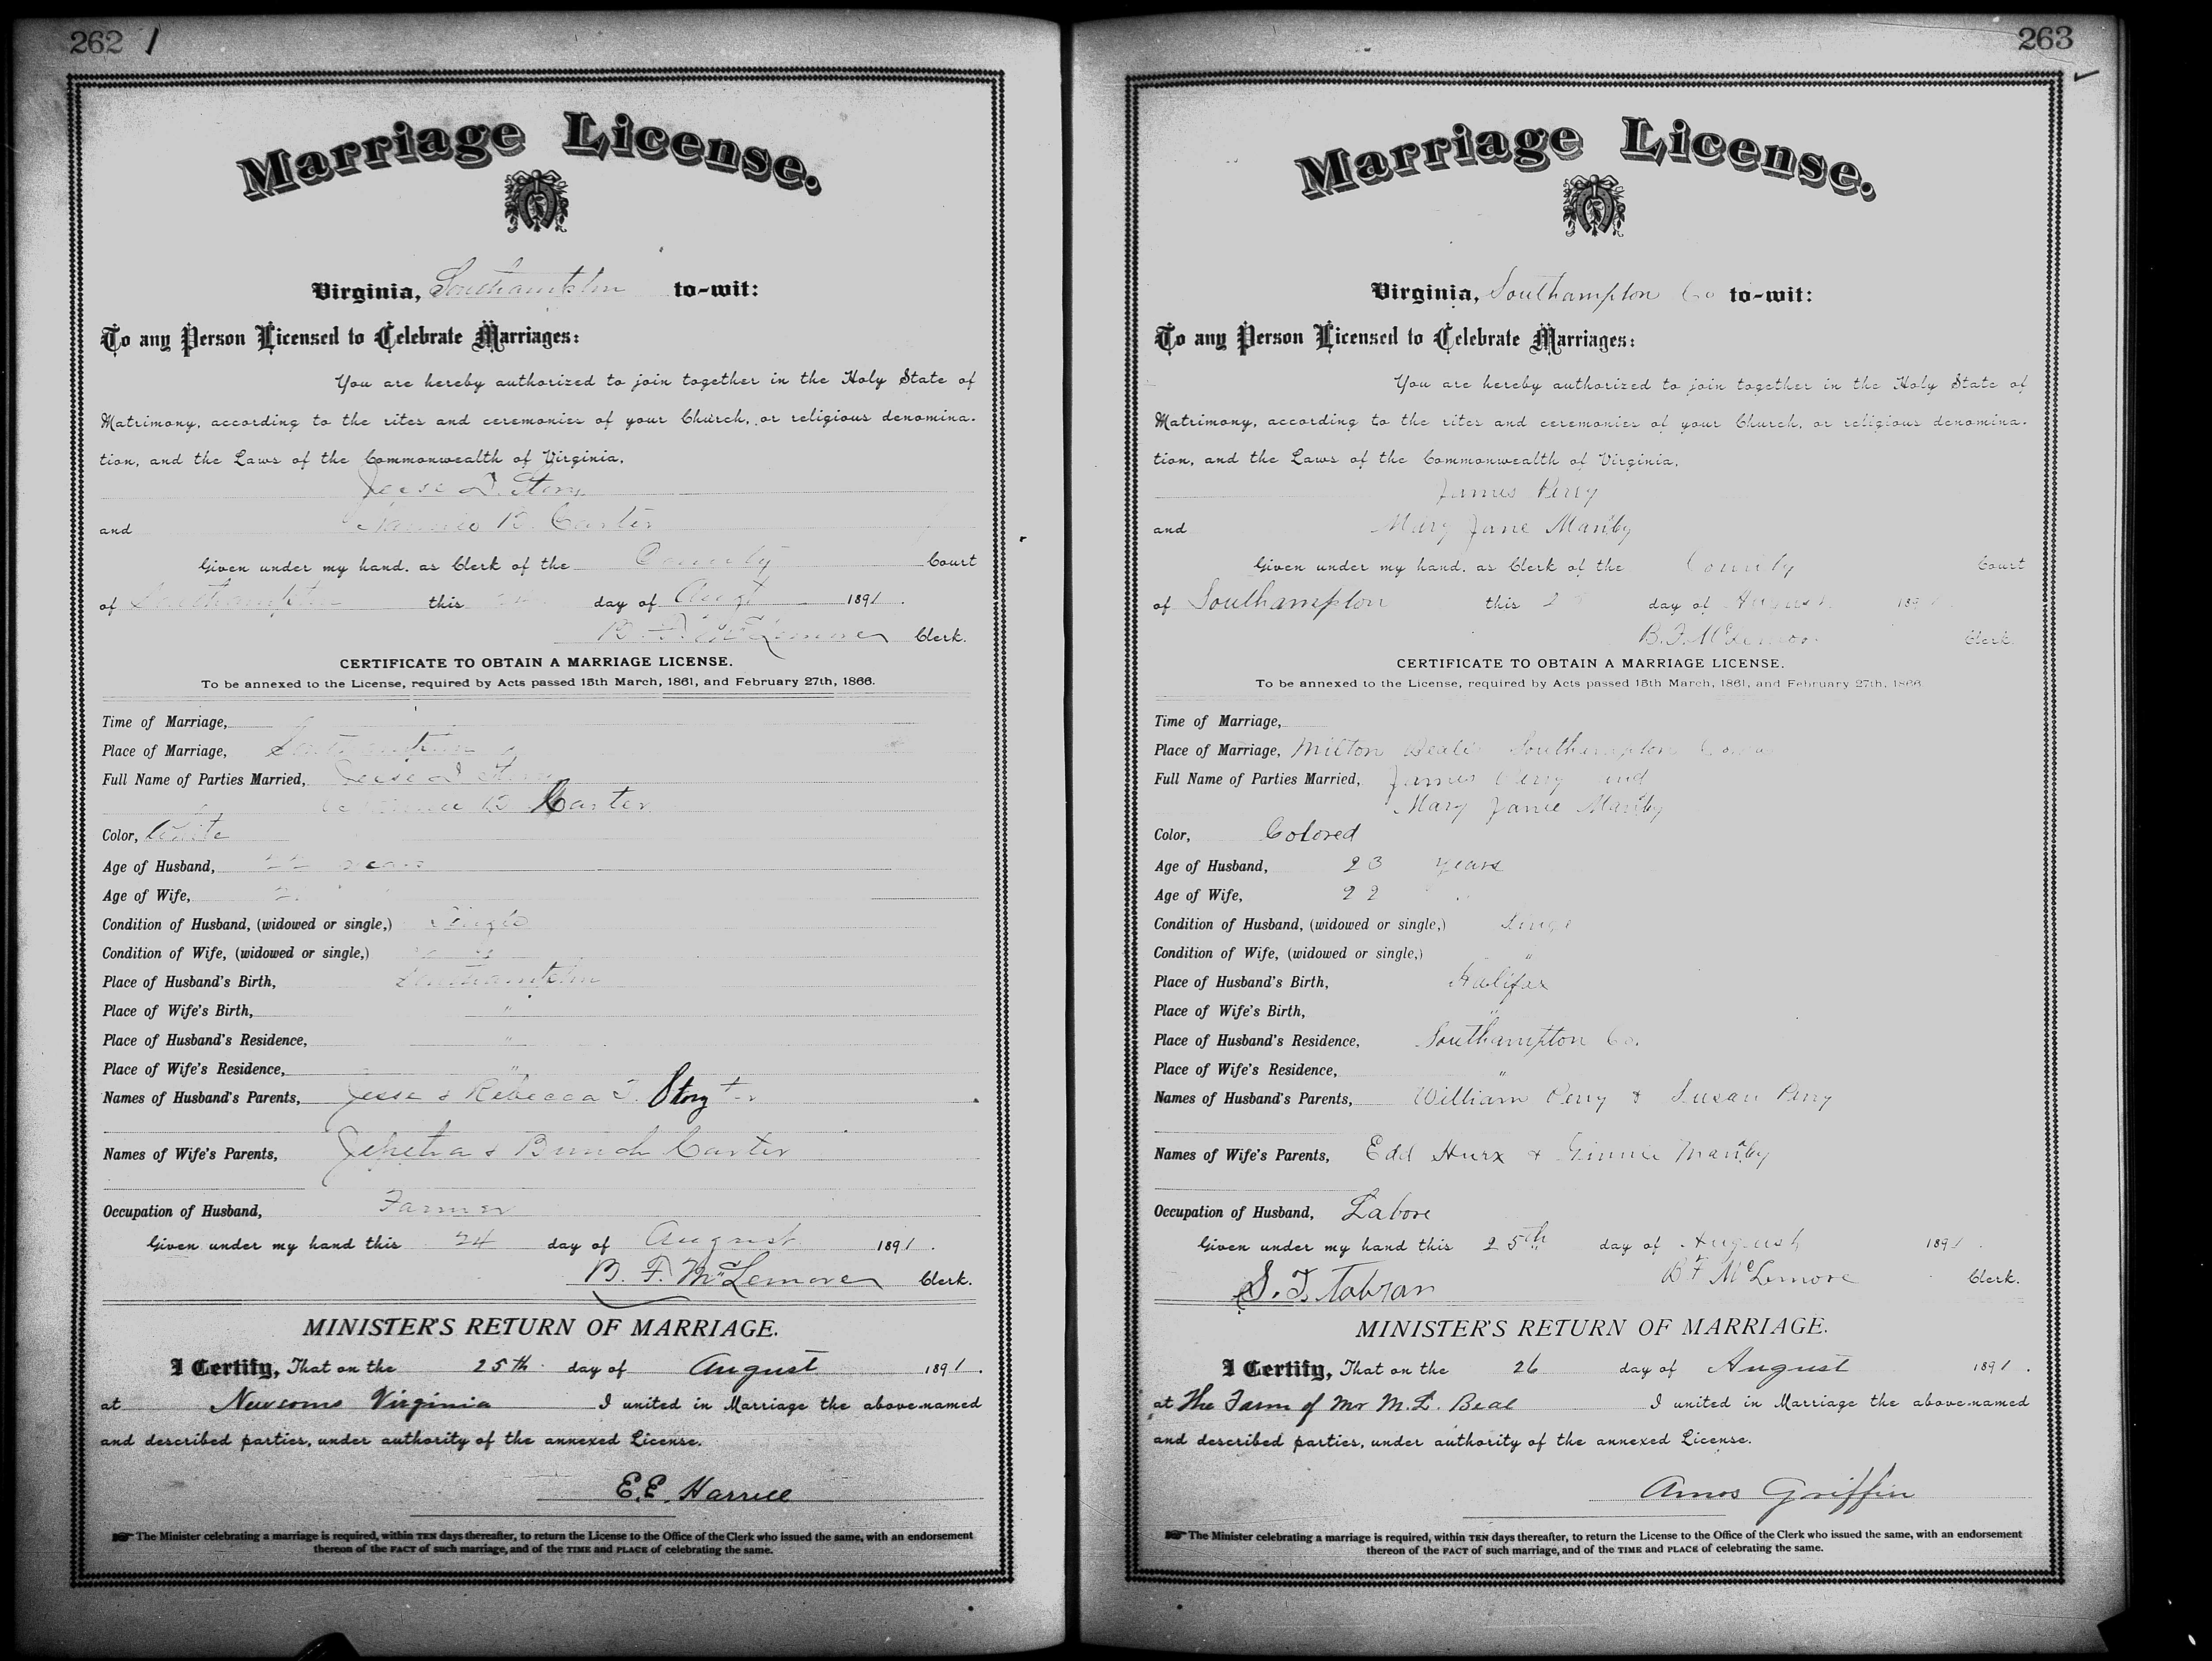 262
Marriage License.
Virginia, Southampton to-wit:
To any Person Licensed to Celebrate Marriages:
You are hereby authorized to join together in the Holy State of
Matrimony, according to the rites and ceremonies of your Church, or religious denomina-
tion, and the Laws of the Commonwealth of Virginia,
Jesse Story
and B. Carter
Given under my hand, as Clerk of the County Court
of Southampton this 24 day of Augt 1891.
B. F. McLemore Clerk.
CERTIFICATE TO OBTAIN A MARRIAGE LICENSE.
To be annexed to the License, required by Acts passed 15th March, 1861, and February 27th, 1866.
Time of Marriage,
Place of Marriage, Southampton
Full Name of Parties Married, Jesse Story
B Carter
Color, White
Age of Husband, 22 years
Age of Wife,
Condition of Husband, (widowed or single,) Single
Condition of Wife, (widowed or single,)
Place of Husband's Birth, Southampton
Place of Wife's Birth, "
Place of Husband's Residence, "
Place of Wife's Residence, "
Names of Husband's Parents, Jesse & Rebecca T. Story
Names of Wife's Parents, Carter
Occupation of Husband, Farmer
Given under my hand this 24 day of August 1891.
B. F. McLemore Clerk.
MINISTER'S RETURN OF MARRIAGE.
I Certify, That on the 25th day of August 1891.
at Newsoms Virginia I united in Marriage the above-named
and described parties, under authority of the annexed License.
E.E. Harrell
The Minister celebrating a marriage is required, within TEN days thereafter, to return the License to the Office of the Clerk who issued the same, with an endorsement
thereon of the FACT of such marriage, and of the TIME and PLACE of celebrating the same.
263
Marriage License.
Virginia, Southampton Co to-wit:
To any Person Licensed to Celebrate Marriages:
You are hereby authorized to join together in the Holy State of
Matrimony, according to the rites and ceremonies of your Church, or religious denomina-
tion, and the Laws of the Commonwealth of Virginia,
James Perry
and Mary Jane Manby
Given under my hand, as Clerk of the County Court
of Southampton this day of August 1891
B. F. McLemore Clerk.
CERTIFICATE TO OBTAIN A MARRIAGE LICENSE.
To be annexed to the License, required by Acts passed 15th March, 1861, and February 27th, 1866
Time of Marriage,
Place of Marriage, Milton Beale Southampton
Full Name of Parties Married, James Perry and
Mary Jane Manby
Color, Colored
Age of Husband, 23 years
Age of Wife, 22 "
Condition of Husband, (widowed or single,) Single
Condition of Wife, (widowed or single,) "
Place of Husband's Birth, Halifax
Place of Wife's Birth, "
Place of Husband's Residence, Southampton Co.
Place of Wife's Residence, "
Names of Husband's Parents, William Perry & Susan Perry
Names of Wife's Parents, Edd Hurx & Ginnie Manby
Occupation of Husband, Labore
Given under my hand this 25th day of August 1891.
B F McLemore Clerk.
S. T.
MINISTER'S RETURN OF MARRIAGE.
I Certify, That on the 26 day of August 1891.
at The Farm of Mr M. L. Beal I united in Marriage the above-named
and described parties, under authority of the annexed License.
Amos Griffin
The Minister celebrating a marriage is required, within TEN days thereafter, to return the License to the Office of the Clerk who issued the same, with an endorsement
thereon of the FACT of such marriage, and of the TIME and PLACE of celebrating the same.